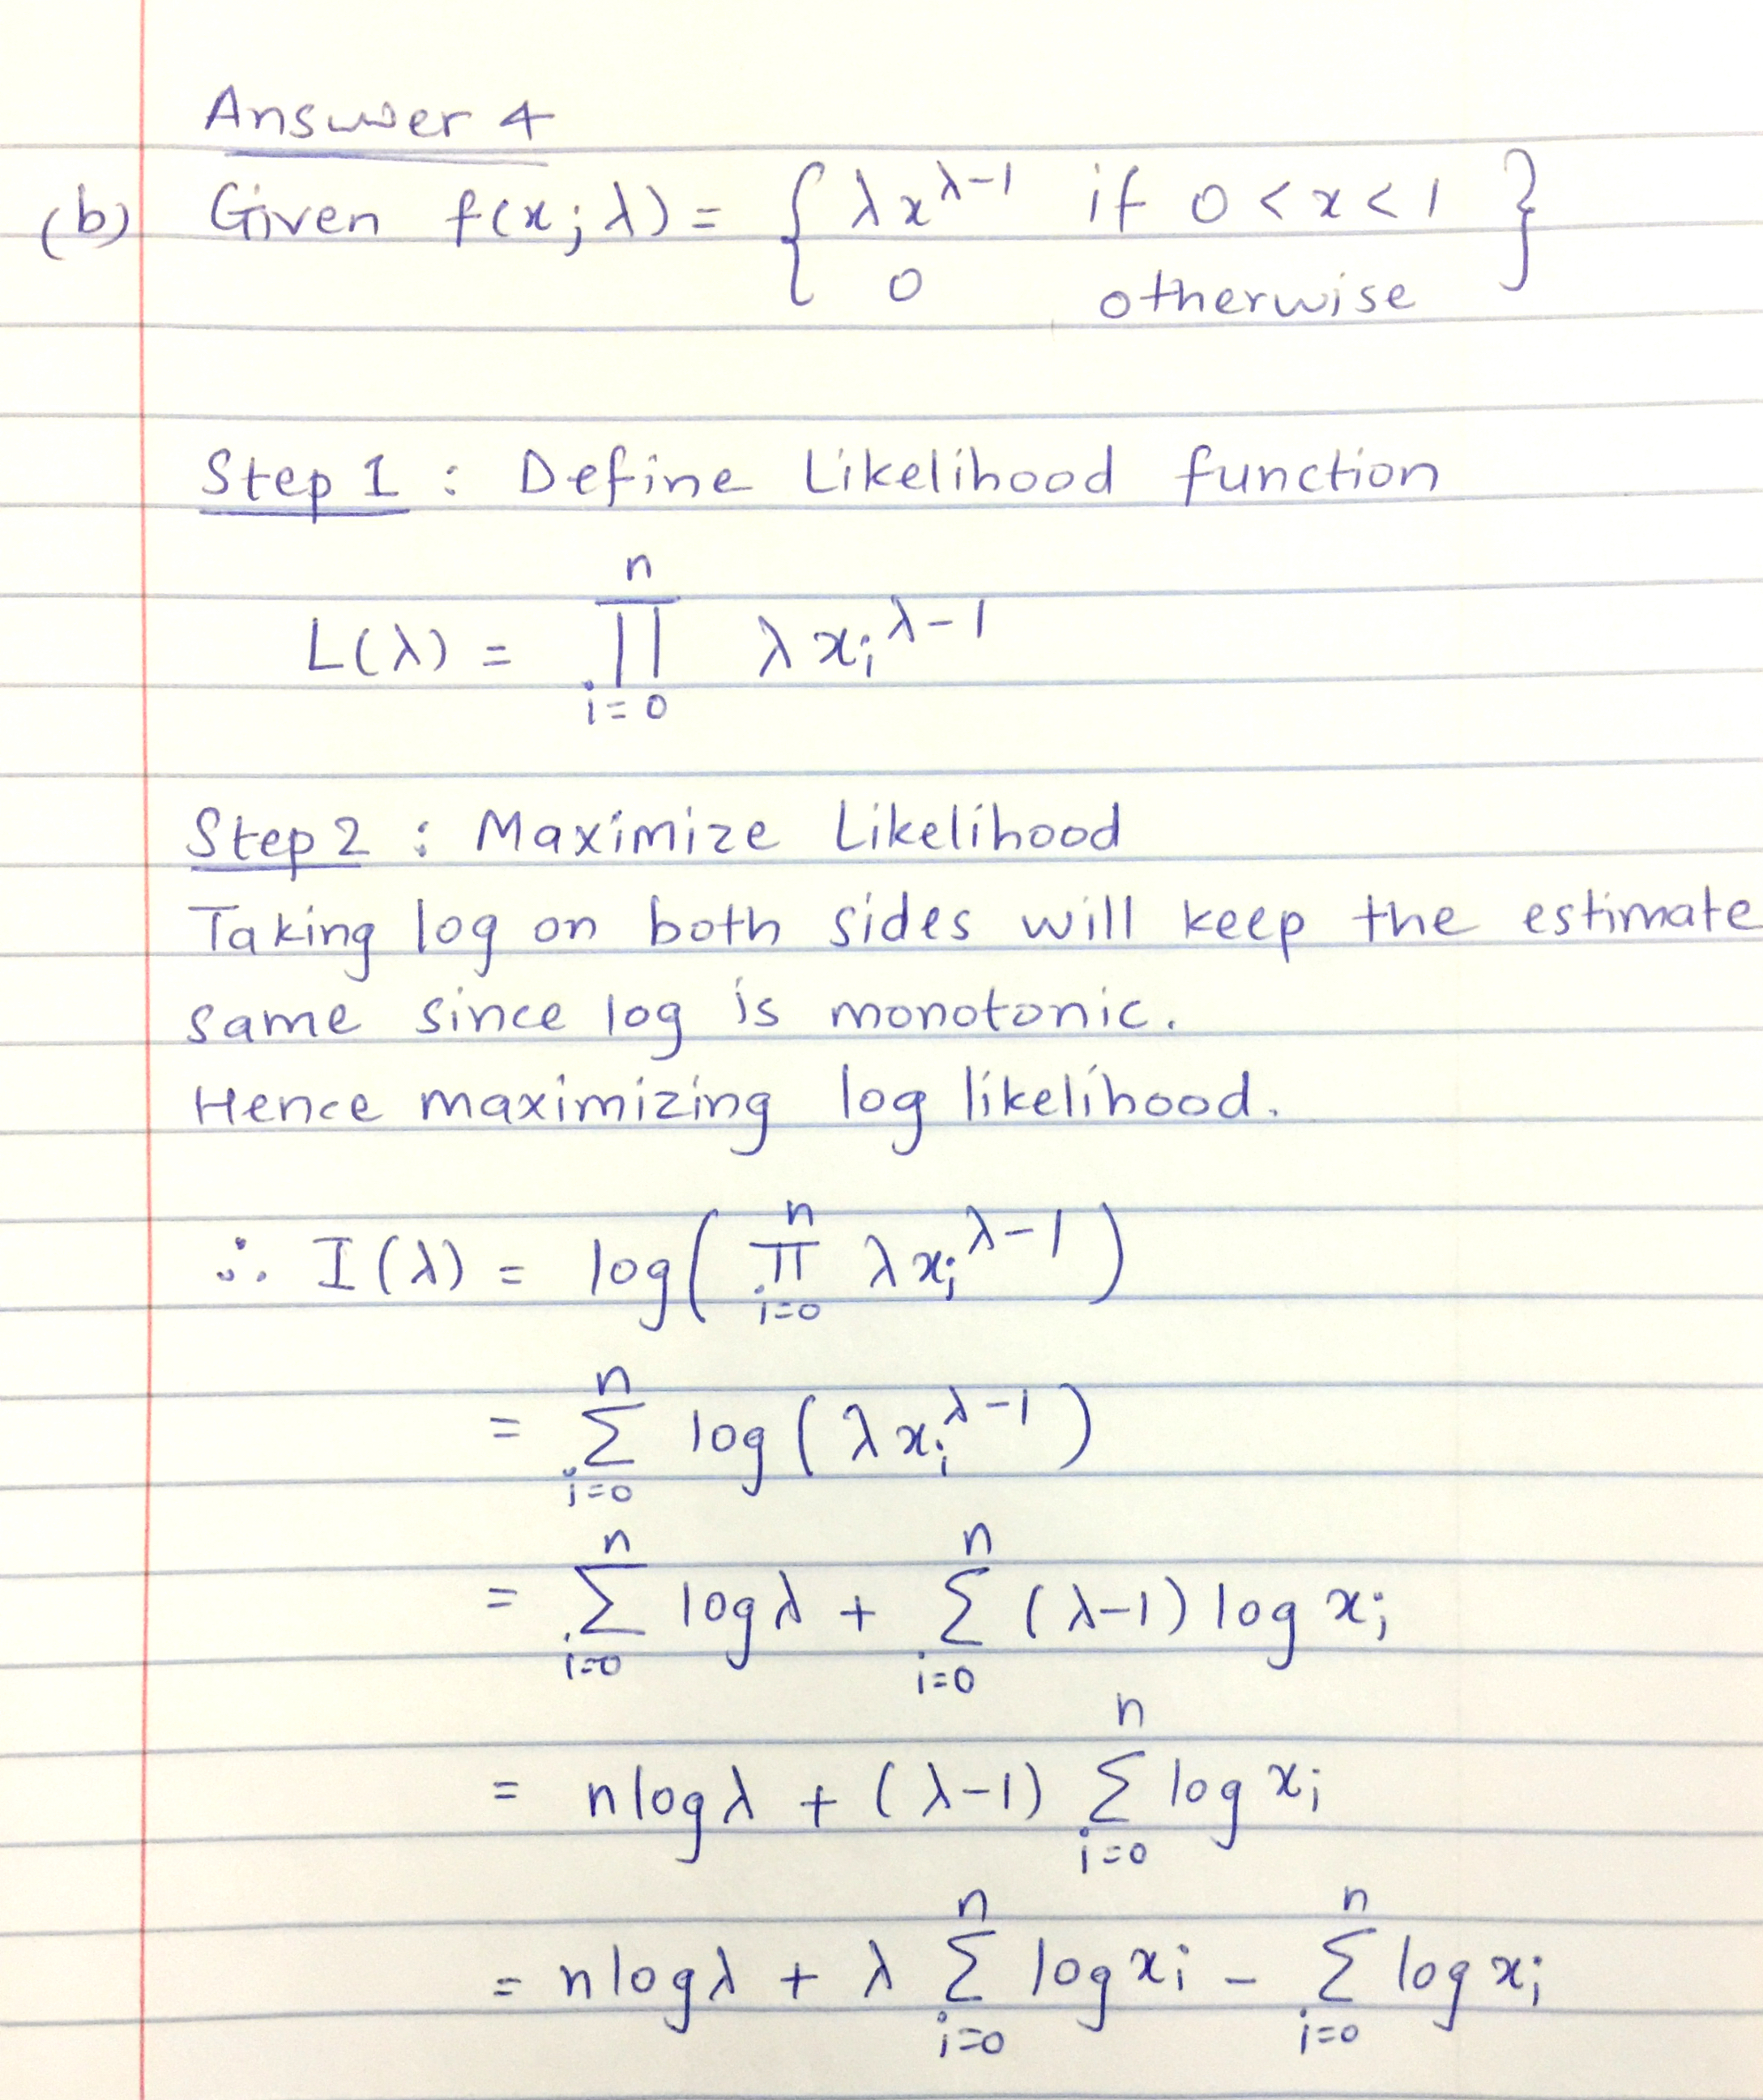 Answer 4
(b) Given f(x; λ) = { λx^{λ-1} if 0 < x < 1 }
0 otherwise
Step 1 : Define Likelihood function
L(λ) = ∏_{i=0}^{n} λ x_i^{λ-1}
Step 2 : Maximize Likelihood
Taking log on both sides will keep the estimate
same since log is monotonic.
Hence maximizing log likelihood.
∴ I(λ) = log( ∏_{i=0}^{n} λ x_i^{λ-1} )
= ∑_{i=0}^{n} log ( λ x_i^{λ-1} )
= ∑_{i=0}^{n} log λ + ∑_{i=0}^{n} (λ-1) log x_i
= n log λ + (λ-1) ∑_{i=0}^{n} log x_i
= n log λ + λ ∑_{i=0}^{n} log x_i - ∑_{i=0}^{n} log x_i